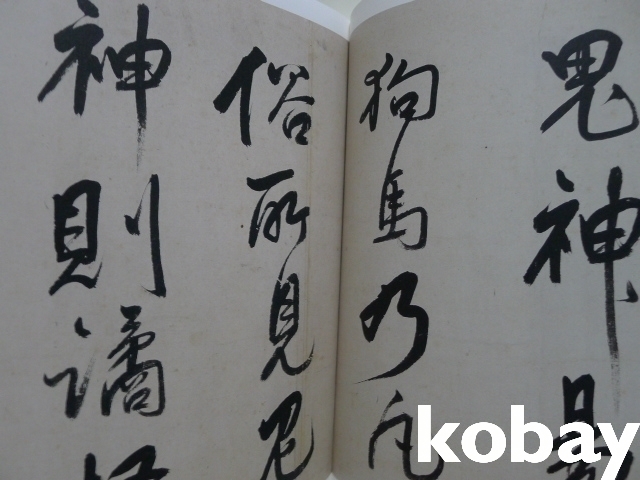 鬼神最
狗馬乃凡
俗所見鬼
神則譎怪
kobay